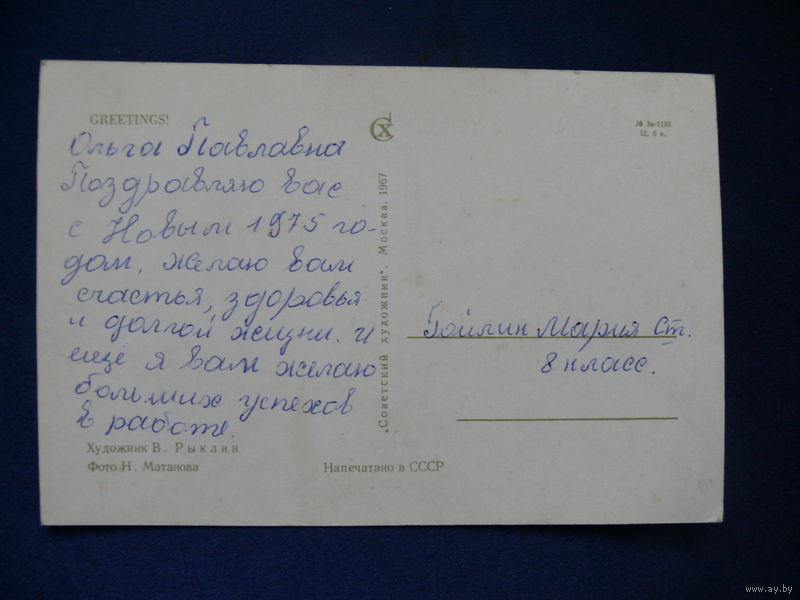 GREETINGS!
Ольга Павлавна
Поздравляю вас
с Новым 1975 го-
дом, желаю вам
счастья, здоровья
и долгой жизни. и
ещё я вам желаю
больших успехов
в работе.
Художник В. Рыклин
Фото Н. Матанова
СХ
„Советский художник". Москва. 1967
Напечатано в СССР
№ 3а-1155
Ц. 6 к.
Гойлик Мария Ст.
8 класс.
www.ay.by